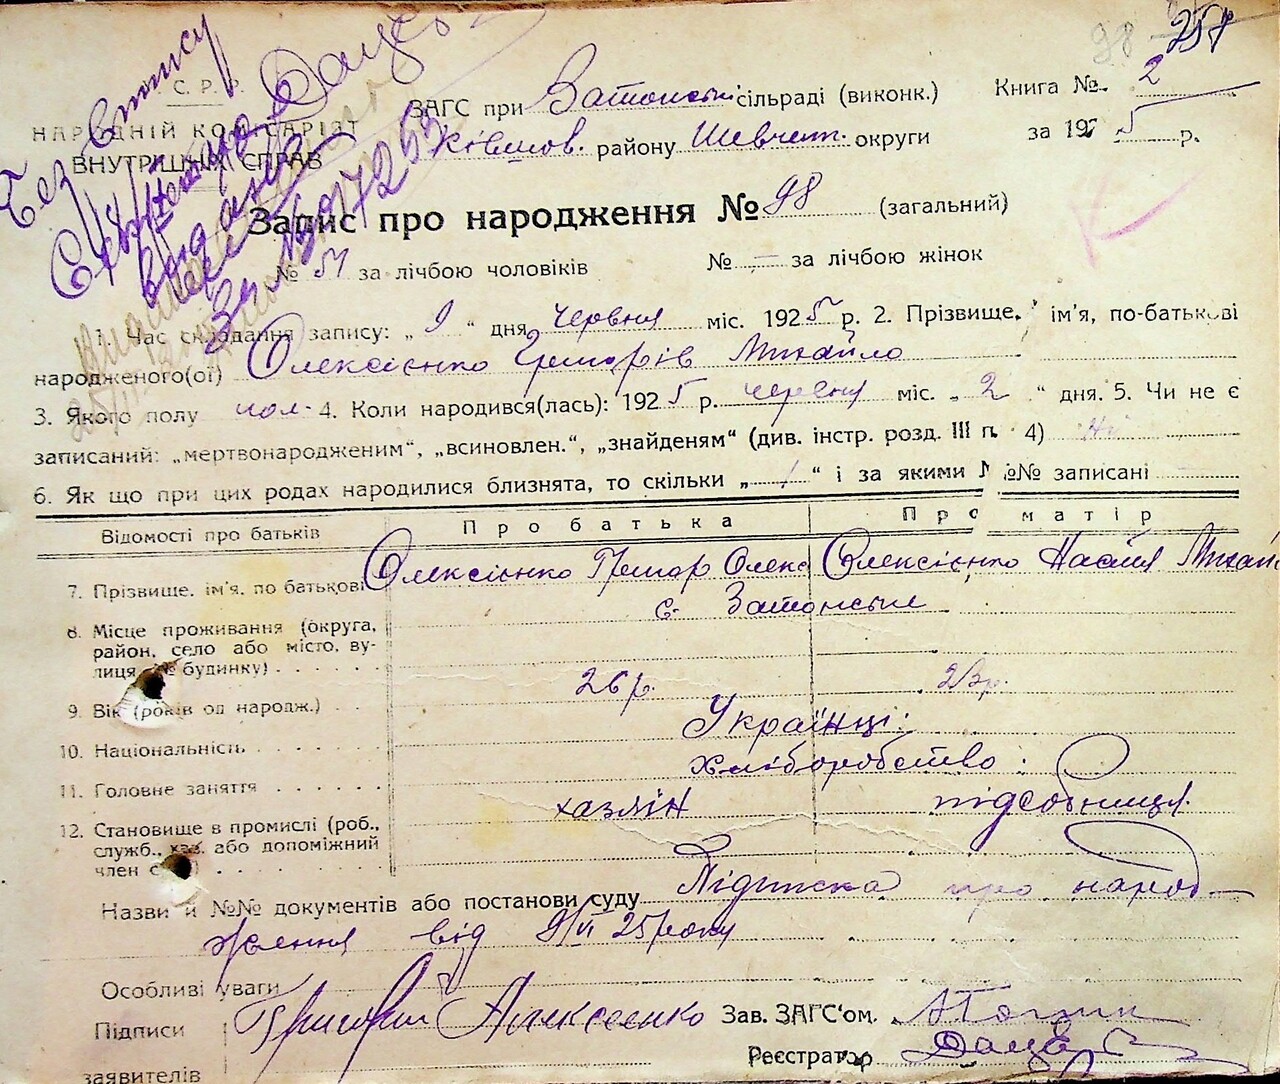 98 257
С. Р. Р.
НАРОДНІЙ КОМІСАРІЯТ
ВНУТРІШНІХ СПРАВ
Без
ЗАГС при Затонські сільраді (виконк.)
Книга № 2
району Шевчен. округи
за 1925 р.
Запис про народження № 98 (загальний)
№ 51 за лічбою чоловіків № — за лічбою жінок
1. Час складання запису: „ 9 “ дня червня міс. 1925 р. 2. Прізвище, ім'я, по-батькові
народженого(ої) Олексієнко Михайло
3. Якого полу чол. 4. Коли народився(лась): 1925 р. червня міс. „ 2 “ дня. 5. Чи не є
записаний: „мертвонародженим“, „всиновлен.“, „знайденям“ (див. інстр. розд. III п. 4) ні
6. Як що при цих родах народилися близнята, то скільки „ “ і за якими №№ записані
Відомості про батьків Про батька Про матір
7. Прізвище, ім'я, по батькові Олексієнко Григор Олекс Олексієнко Настя Михай
8. Місце проживання (округа, район, село або місто, вулиця № будинку) с. Затонське
9. Вік (років од народж.) 26 р. 23 р.
10. Національність Українці:
11. Головне заняття хліборобство:
12. Становище в промислі (роб., служб., хаз. або допоміжний член с хазяїн підсобниця.
Назви й №№ документів або постанови суду Підписка про народ-
ження від 9/VI 25 року
Особливі уваги
Підписи заявителів Григорий Алексеенко
Зав. ЗАГС'ом.
Реєстратор